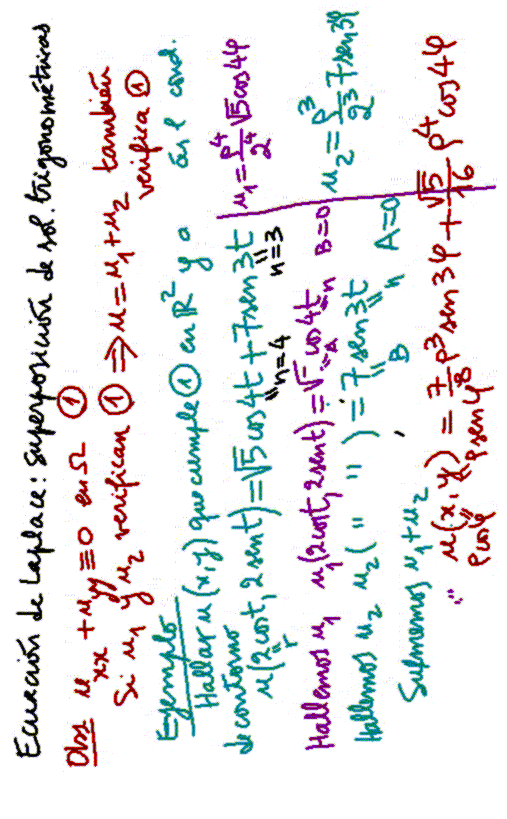 Ecuación de Laplace: superposición de sol. trigonométricas
Obs u_xx + u_yy ≡ 0 en Ω ①
Si u₁ y u₂ verifican ① ⇒ u = u₁ + u₂ también verifica ①
Ejemplo
Hallar u(x,y) que cumple ① en ℝ² y a
de contorno
u(2cost, 2sent) = √5 cos4t + 7sen3t
"r "n=4 "n=3
Hallemos u₁ u₁(2cost, 2sent) = √ cos4t B=0
"A "n
u₁ = ρ⁴/2⁴ √5 cos4φ
Hallemos u₂ u₂( " " ) = 7sen3t A=0
"B "n
u₂ = ρ³/2³ 7sen3φ
Sumemos u₁+u₂
u(x,y) = 7/8 ρ³ sen3φ + √5/16 ρ⁴ cos4φ
ρcosφ ρsenφ